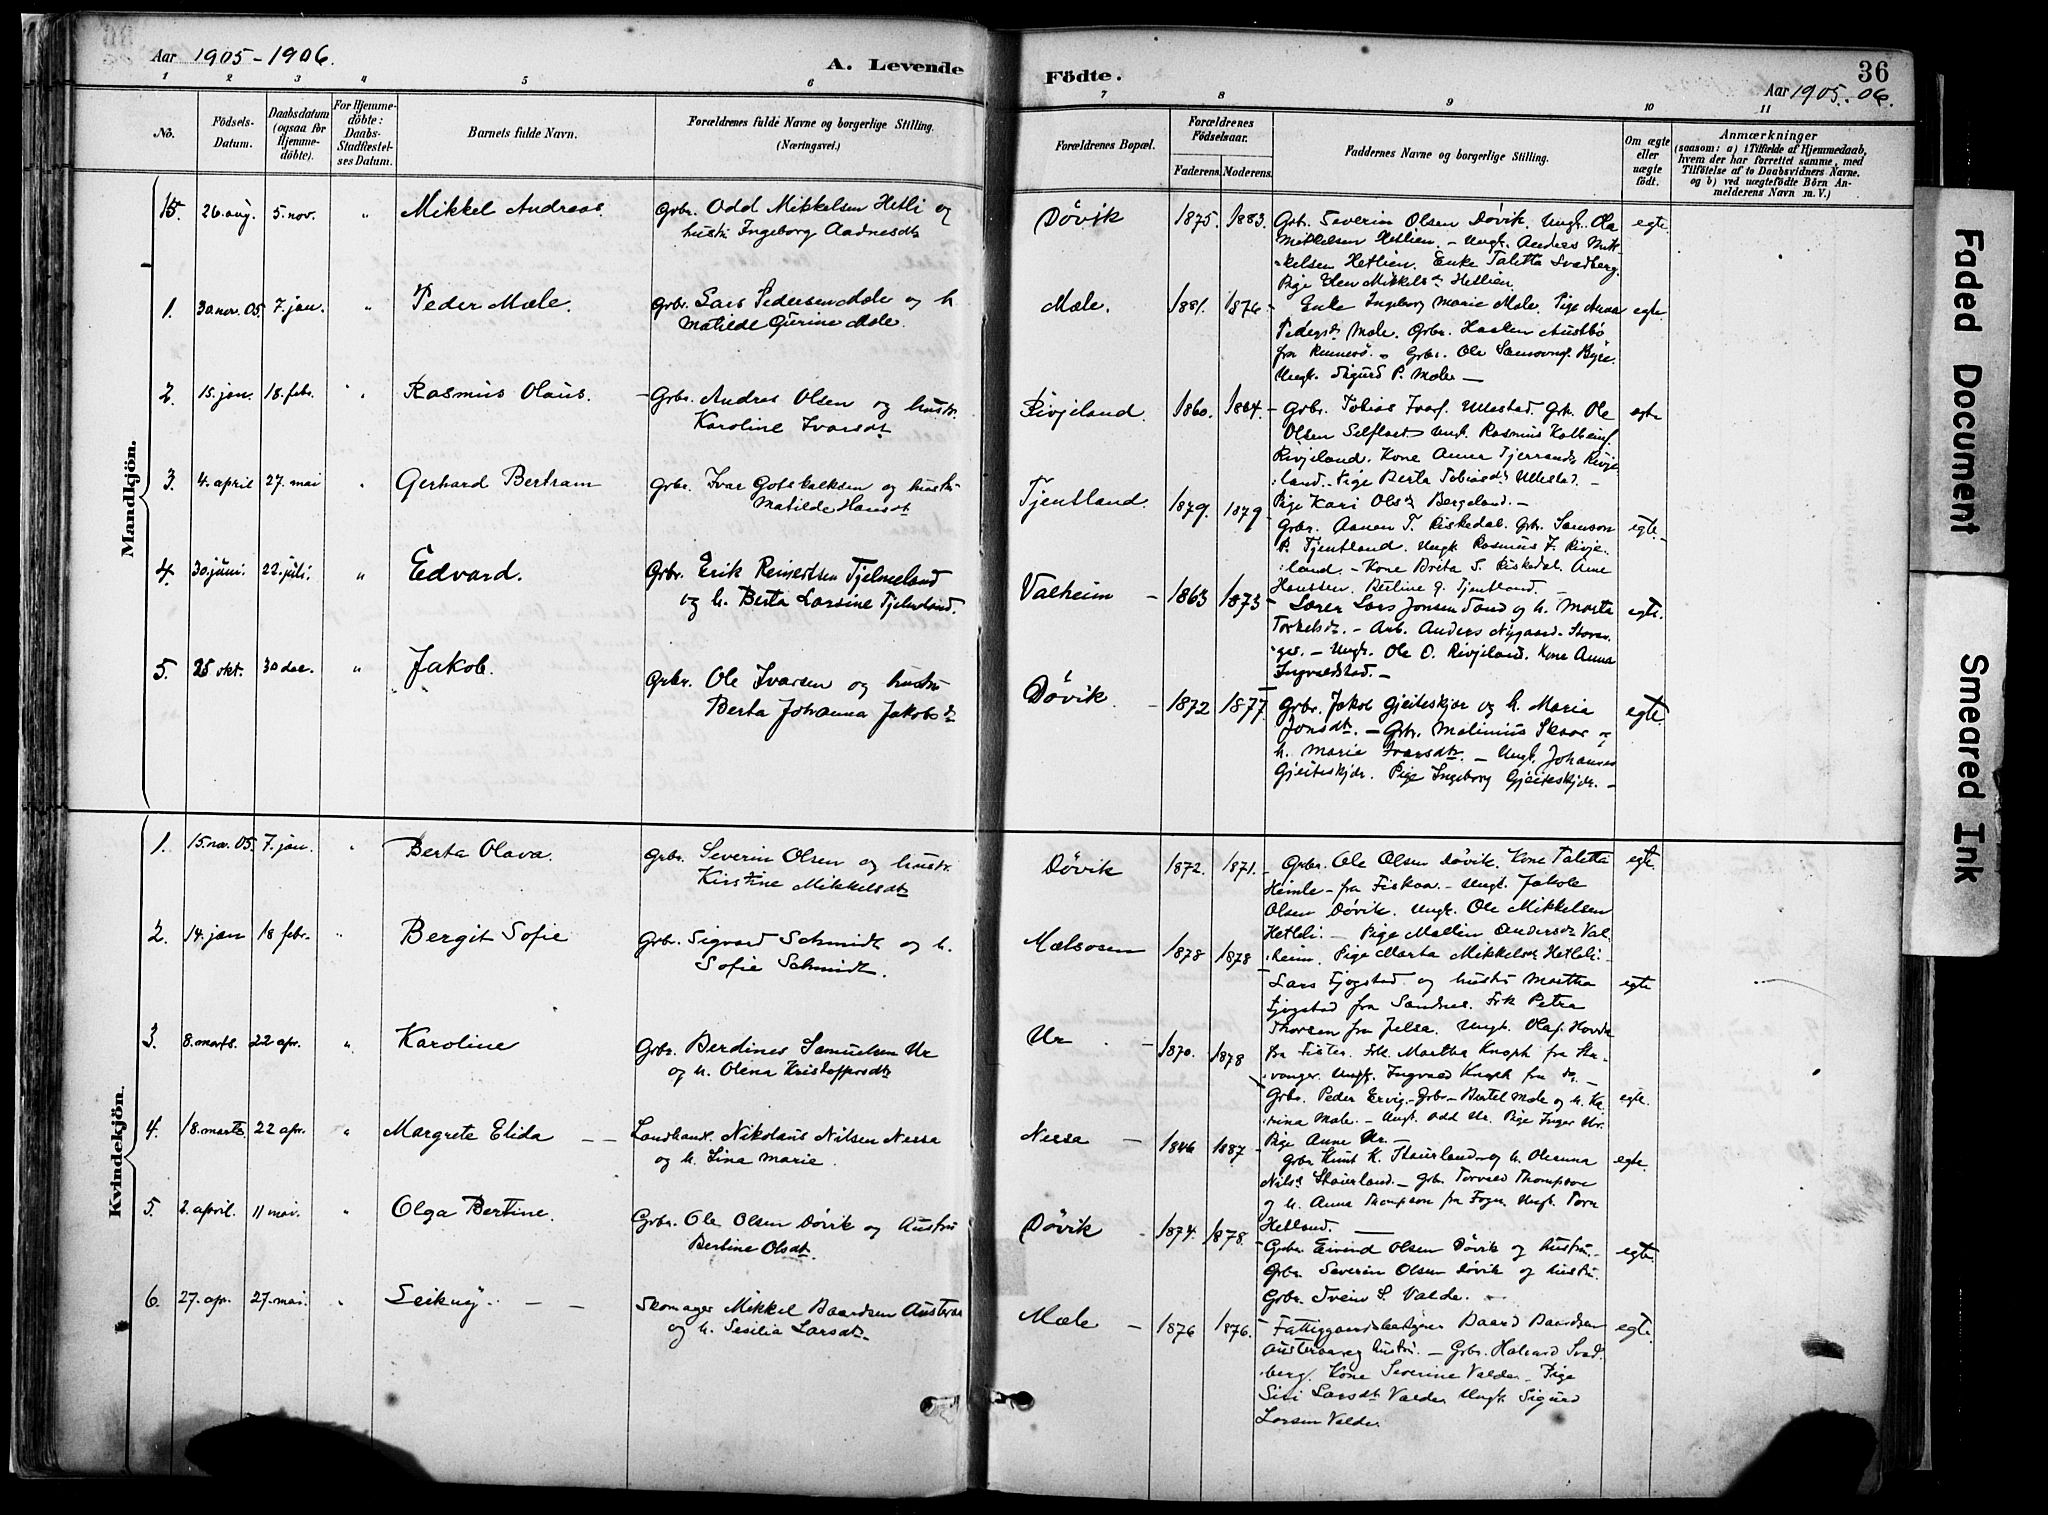 Aar 1905-1906.
A. Levende
Födte.
36
Aar 1905.-06.
1 2 3 4 5 6 7 8 9 10 11
No.
Födsels-Datum.
Daabsdatum (ogsaa for Hjemme-döbte).
For Hjemme-döbte: Daabs-Stadfæstel-ses Datum.
Barnets fulde Navn.
Forældrenes fulde Navne og borgerlige Stilling. (Næringsvei.)
Forældrenes Bopæl.
Forældrenes Födselsaar.
Faderens. Moderens.
Faddernes Navne og borgerlige Stilling.
Om ægte eller uægte født.
Anmærkninger
(saasom: a) i Tilfælde af Hjemmedaab, hvem der har forrettet samme, med Tilföielse af to Daabsvidners Navne. og b) ved uægtefödte Börn An-melderens Navn m. V.)
Mandkjön.
15. 26. aug. 5. nov. " Mikkel Andreas.
Grbr. Odd Mikkelsen Hetli og
hustr. Ingeborg Aadnesdtr
Døvik 1875. 1883.
Grbr. Severin Olsen Døvik. Ungk. Ola
Mikkelsen Hetlien. - Ungk. Anders Mik-
kelsen Hetlien. Enke Taletta Svadberg.
Pige Elen Mikkelsdr Hetlien.
egte.
1. 30. nov. 05. 7. jan. " Peder Mæle.
Grbr. Lars Pedersen Mæle og h.
Matilde Gurine Mæle.
Mæle. 1881. 1876
Enke Ingeborg Marie Mæle. Pige Anna
Pedersdr Mæle. Grbr. Haaken Austbø
fra Rennesö. Grbr. Ole
Ungk. Sigurd P. Mæle -
egte.
2. 15. jan. 18. febr. " Rasmus Olaus.
Grbr. Andreas Olsen og hustr.
Karoline Ivarsdtr
Rivjeland. 1860. 1864
Grbr. Tobias Ivars. Ullestad. Grbr. Ole
Olsen Selflaet Ungk. Rasmus
Rivjeland. Kone Anna Tjerrandsdr Rivje-
land. Pige Berta Tobiasdr Ullestad. -
Pige Kari Olsdr Bergeland. -
egte
3. 4. april 27. mai " Gerhard Bertram
Grbr. Ivar Gotskalksen og hustr.
Matilde Hansdtr
Tjentland. 1879. 1879
Grbr. Aanen T. Riskedal. Grbr. Samson
P. Tjentland. Ungk. Rasmus J. Rivje-
land. - Kone Brita S. Riskedal. Ane
Hanssen. Berline G. Tjentland. -
egte.
4. 30. juni. 22. juli. " Edvard.
Grbr. Erik Reinertsen Tjelmeland
og h. Berta Larsine Tjelmeland.
Valheim - 1863 1873
Lærer Lars Jonsen Sand og h. Marta
Torkelsdr. - Arb. Anders Nygaard. Stavan-
ger. - Ungk. Ole O. Rivjeland. Kone Anna
Ingvaldstad. -
egte.
5. 25 okt. 30 dec. " Jakob.
Grbr. Ole Ivarsen og hustru
Berta Johanna Jakobsdr
Døvik. - 1872 1877.
Grbr. Jakob Gjeiteskjær og h. Maria
Jonsdtr. - Grbr. Malinius Skaar og
h. Marie Ivarsdtr. - Ungk. Johannes
Gjeiteskjær. Pige Ingeborg Gjeiteskjær. -
egte
Kvindekjön.
1. 15. nov. 05. 7. jan. " Berta Olava.
Grbr. Severin Olsen og hustr.
Kirstine Mikkelsdtr
Døvik 1872. 1871.
Grbr. Ole Olsen Døvik. Kone Taletta
Heimle - fra Fiskaa. - Ungk. Jakob
Olsen Døvik. Ungk. Ole Mikkelsen
Hetleli. - Pige Mallin Andersdr Val-
heim. Pige Marta Mikkelsdr Hetleli. -
egte.
2. 14. jan 18 febr. " Bergit Sofie
Grbr. Sigvard Schmidt og h.
Sofie Schmidt.
Mælsosen 1878 1878
Lars Fjogstad og hustr. Martha
Fjogstad fra Sandnes. Frk Petra
Thorsen fra Jelsa. Ungk. Olaf Hovda
fra Fister. Frk. Martha Knoph fra Sta-
vanger. Ungk. Ingvald Knoph fra do. -
egte
3. 8. marts. 22 apr. " Karoline
Grbr. Berdines Samuelsen Ur
og h. Olena Kristoffersdtr
Ur - 1870. 1878
Grbr. Peder Ervig. - Grbr. Bertel Mæle og h. Ka-
rina Mæle. - Ungk. Odd Ur. Pige Inger Ur.
Pige Anne Ur. -
egte.
4. 18. marts 22 apr. " Margrete Elida - -
Landhandl. Nikolaus Nilsen Nessa
og h. Lina Marie.
Nessa - 1846 1887
Grbr Knut K. og h. Oleanna
Nilsdr Grbr. Torvald Thompson
og h. Anna Thompson fra Fogn. Ungk. Tora
Hetland. -
egte.
5. 2. april. 11 mai. " Olga Bertine.
Grbr. Ole Olsen Døvik og hustru
Bertine Olsdtr.
Døvik - 1874. 1878.
Grbr. Eivind Olsen Døvik og hustru. -
Grbr. Severin Olsen Døvik og hustru.
Grbr. Svein S. Valde. -
egte
6. 27. apr. 27. mai. " Leikny. - -
Skomager Mikkel Baardsen Austeraa
og h. Sesilia Larsdtr
Mæle - 1876 1876.
Fattiggaardsbestyrer Baard Baardsen
og hustr. - Grbr. Halvard Svad-
berg. Kone Severine Valde. Pige
Siri Larsdtr Valde. Ungk. Sigurd
Larsen Valde.
egte.
Faded Document
Smeared Ink